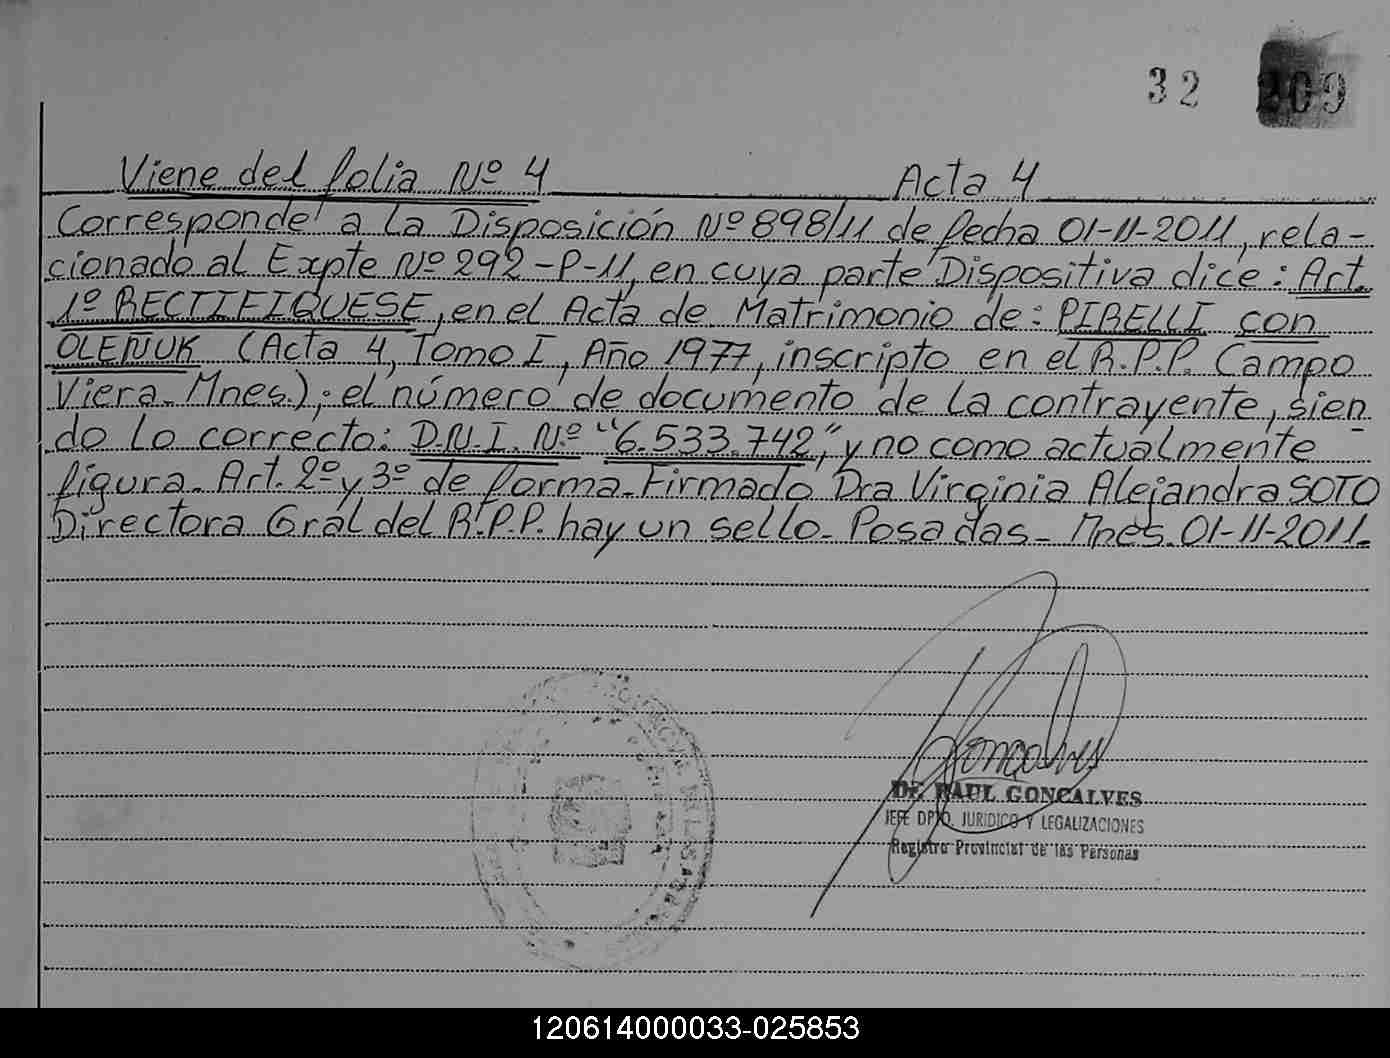 32 209
Viene del folia Nº 4 Acta 4
Corresponde a la Disposición Nº 898/11 de fecha 01-11-2011, rela-
cionado al Expte Nº 292-P-11, en cuya parte Dispositiva dice: Art.
1º RECTIFIQUESE, en el Acta de Matrimonio de: PIBELLI con
OLEÑUK (Acta 4, Tomo I, Año 1977, inscripto en el R.P.P. Campo
Viera. Mnes.); el número de documento de la contrayente, sien
do lo correcto: D.N.I. Nº "6.533.742", y no como actualmente
figura. Art. 2º y 3º de forma. Firmado Dra Virginia Alejandra SOTO
Directora Gral del R.P.P. hay un sello. Posadas - Mnes. 01-11-2011.
Goncalves
RAUL GONCALVES
JEFE DPTO. JURIDICO Y LEGALIZACIONES
Registro Provincial de las Personas
120614000033-025853